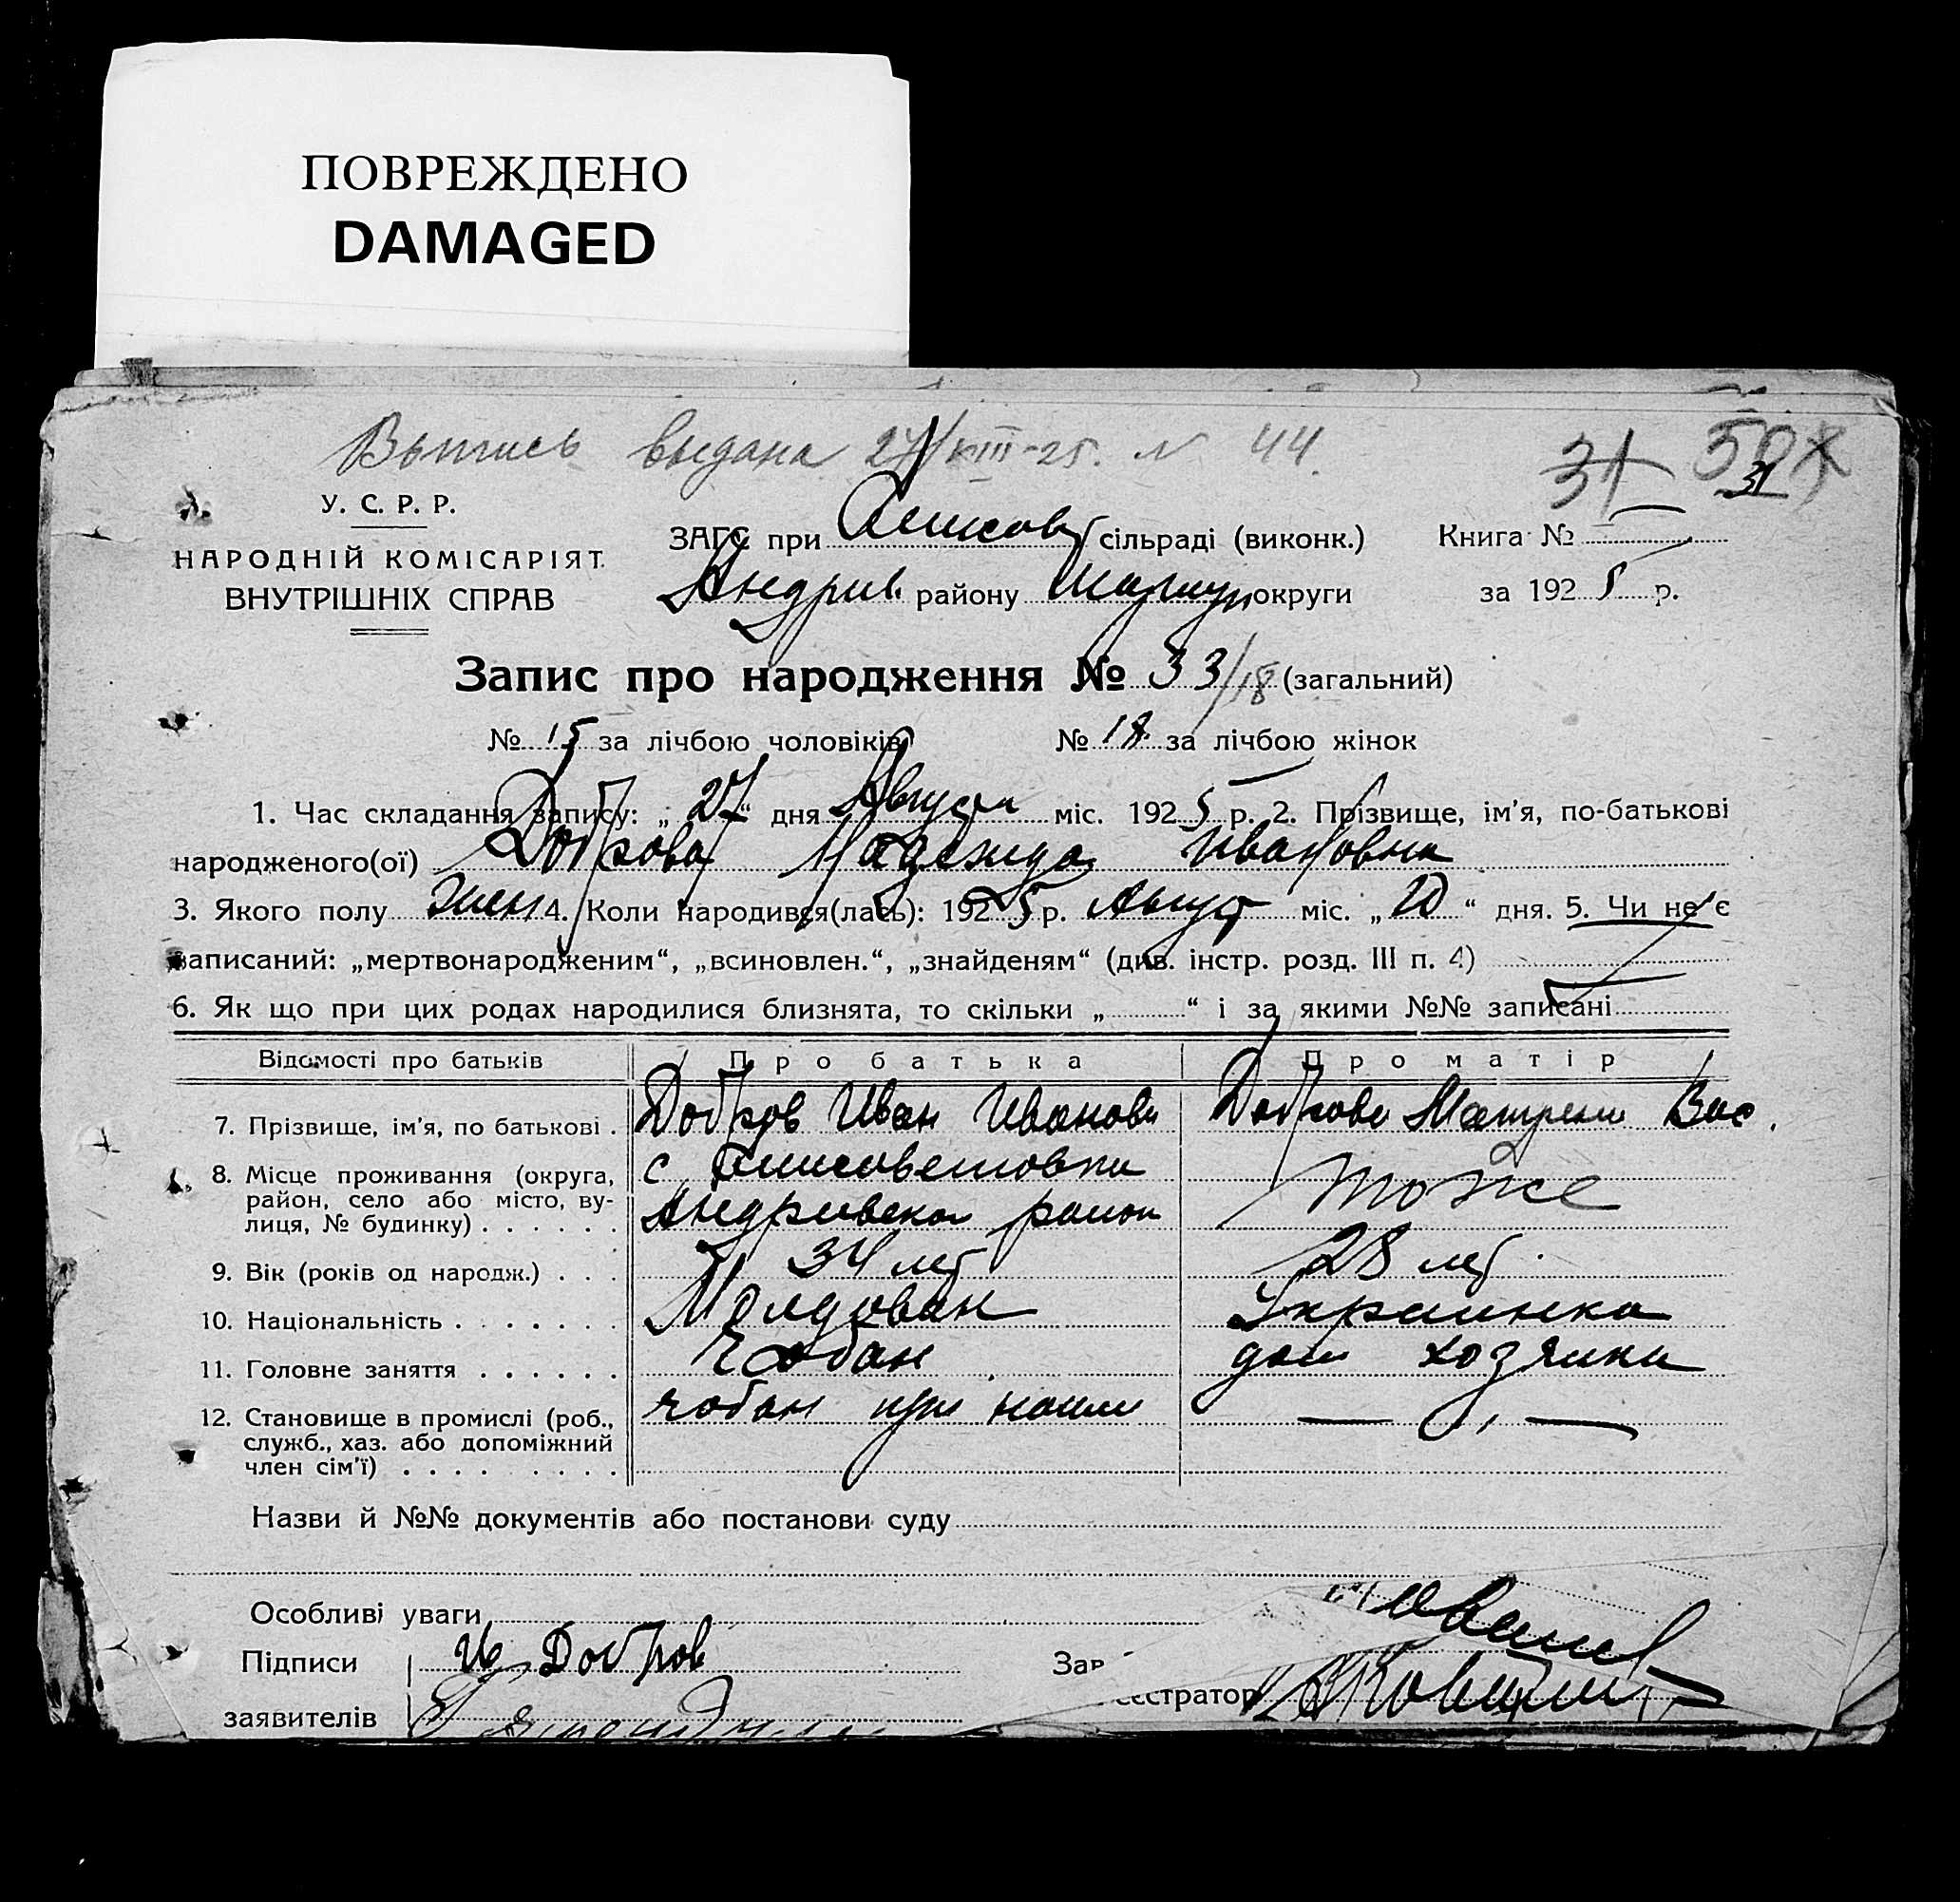 ПОВРЕЖДЕНО
DAMAGED
Выпись выдана 27/VIII-25. N 44.
31
31
У. С. Р. Р.
НАРОДНІЙ КОМІСАРІЯТ
ВНУТРІШНІХ СПРАВ
ЗАГС при сільраді (виконк.)
Андрив. району округи
Книга №
за 1925 р.
Запис про народження № 33/18 (загальний)
№ 15 за лічбою чоловіків № 18 за лічбою жінок
1. Час складання запису: „27“ дня Августа міс. 1925 р. 2. Прізвище, ім'я, по-батькові
народженого(ої) Доброва Надежда Ивановна
3. Якого полу жен 4. Коли народився(лась): 1925 р. Август міс. „20“ дня. 5. Чи не є
записаний: „мертвонародженим“, „всиновлен.“, „знайденям“ (див. інстр. розд. III п. 4)
6. Як що при цих родах народилися близнята, то скільки „ “ і за якими №№ записані
Відомості про батьків Про батька Про матір
7. Прізвище, ім'я, по батькові . Добров Иван Иванови Доброва Матрена Вас.
8. Місце проживання (округа,
район, село або місто, ву-
лиця, № будинку) . . . . . .
с Елисаветовки
Андривскаг район
тоже
9. Вік (років од народж.) . . . 34 лет 28 лет.
10. Національність . . . . . . . Молдован Украинка
11. Головне заняття . . . . . . Чобан дом хозяика
12. Становище в промислі (роб.,
служб., хаз. або допоміжний
член сім'ї) . . . . . . . . .
чобан при
— „ —
Назви й №№ документів або постанови суду
Особливі уваги
Підписи
заявителів
Ив Добров
Зав
єстратор